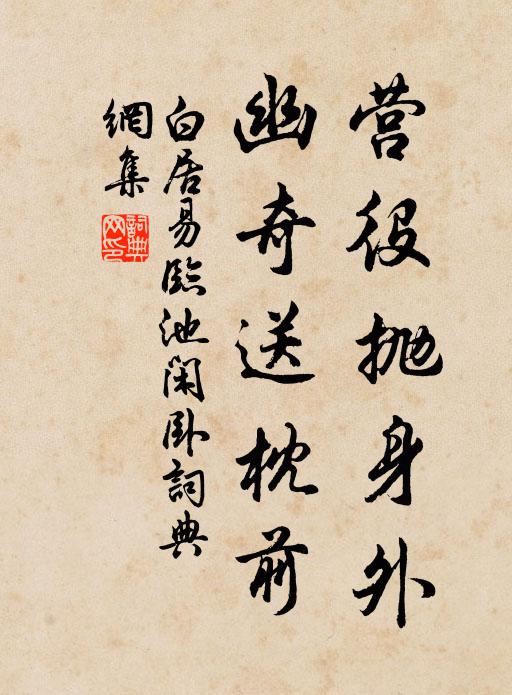 营役抛身外
幽奇送枕前
白居易臨池闲卧詞典
網集
詞典
网印